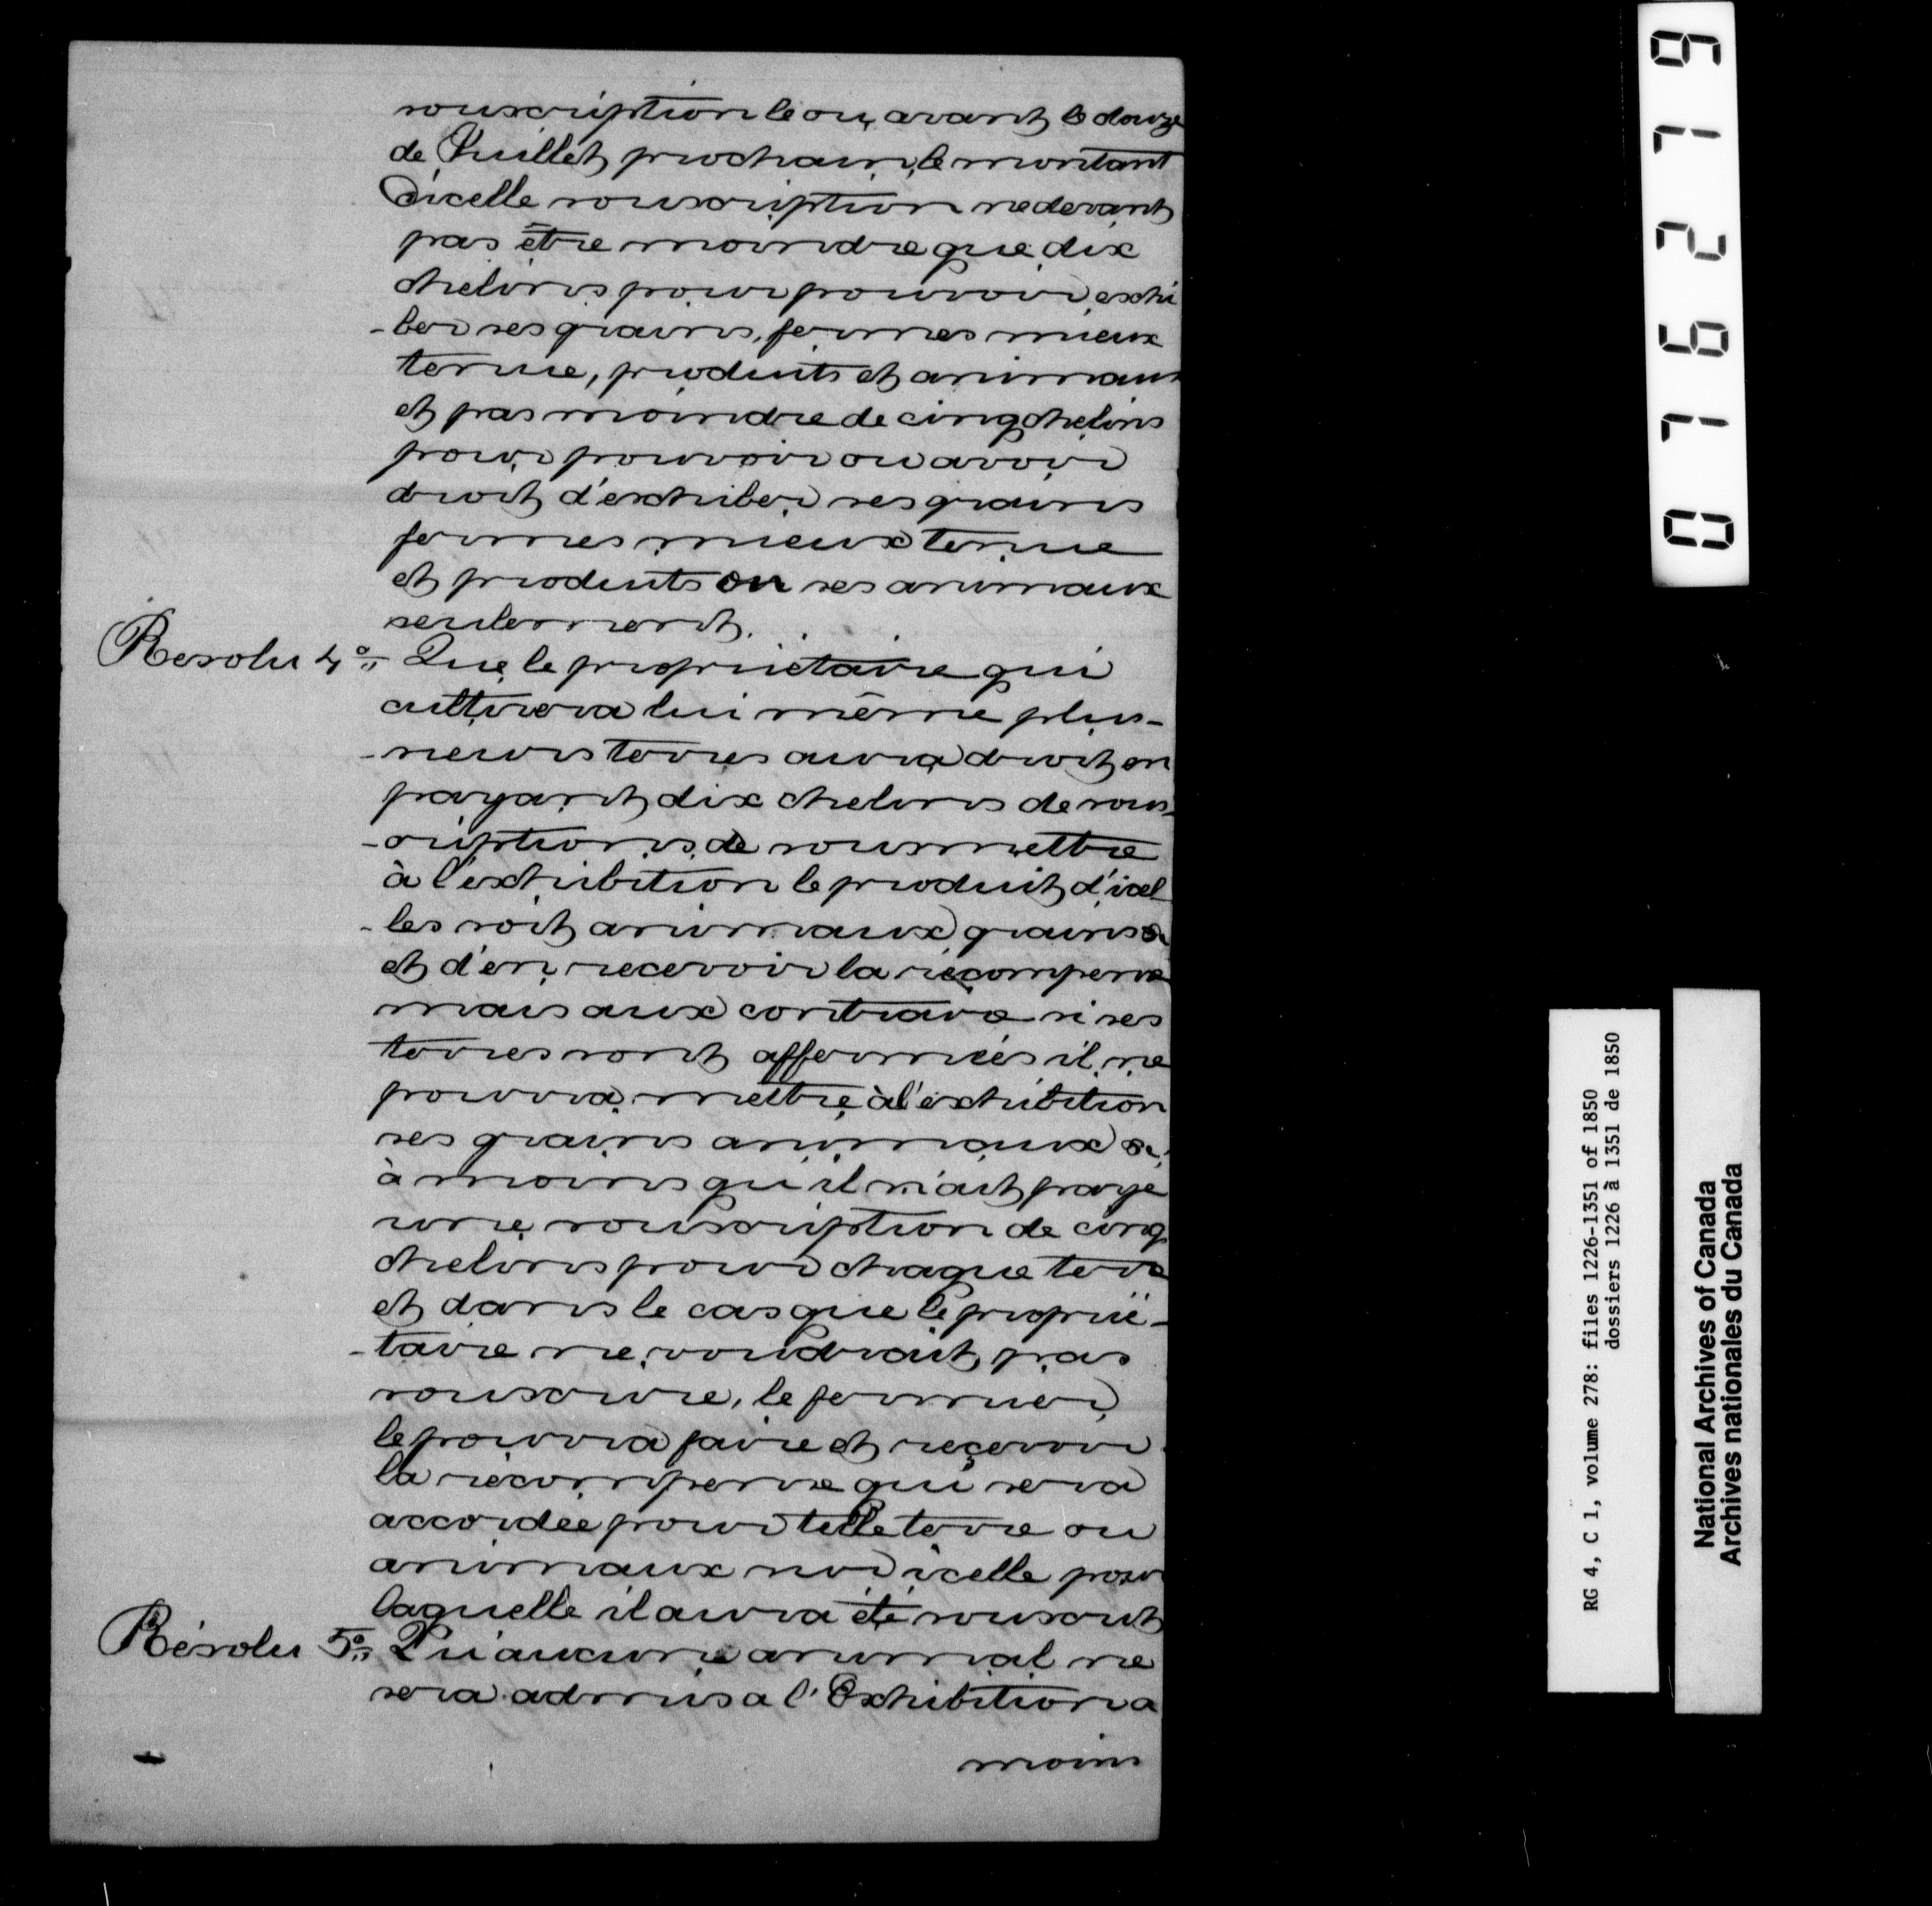 souscription le ou avant le douze
de Juillet prochain, le montant
d'icelle souscription ne devant
pas être moindre que dix
chelins pour pouvoir exhi
-ber ses grains, fermes mieux
tenue, produits et animaux
et pas moindre de cinq chelins
pour pouvoir ou avoir
droit d'exhiber ses grains
fermes mieux tenue
et produits ou ses animaux
seulement.
Resolu 4o,, Que le propriétaire qui
cultivera lui même plu-
-sieurs terres aura droit en
payant dix chelins de sous-
-criptions, de soumettre
à l'exhibition le produit d'icel
-les soit animaux grains &
et d'en recevoir la récompense
mais aux contraire si ses
terres sont affermées il ne
pourra mettre à l'exhibition
ses grains animaux &c
à moins qu'il n'ait paye
une souscription de cinq
chelins pour chaque terre
et dans le cas que le proprié-
-taire ne voudrait pas
souscrire, le fermier
le pourra faire et recevoir
la récompense qui sera
accordée pour telle terre ou
animaux sur icelle pour
laquelle il aura été souscrit
Résolu 5o,, Qu'aucune animal ne
sera admis a l'Exhibition a
moins
071627 9
RG 4, C 1, volume 278: files 1226-1351 of 1850
dossiers 1226 à 1351 de 1850
National Archives of Canada
Archives nationales du Canada